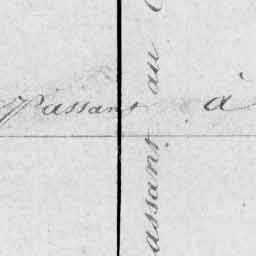 Passant à
assant au